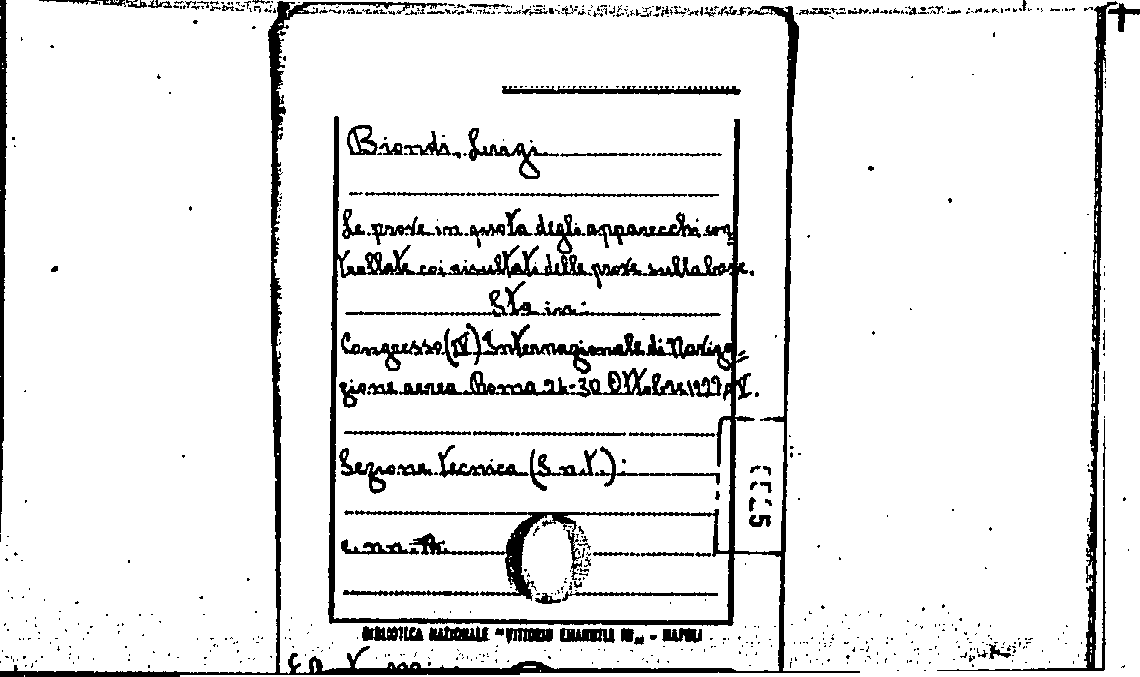 Biondi, Luigi
Le prove in quota degli apparecchi con
trollate coi risultati delle prove sulla base.
Sta in:
Congresso (IV) Internazionale di Naviga=
zione aerea Roma 24-30 Ottobre 1927, V.
Sezione tecnica (S.n.t.):
BIBLIOTECA NAZIONALE "VITTORIO EMANUELE III„ - NAPOLI